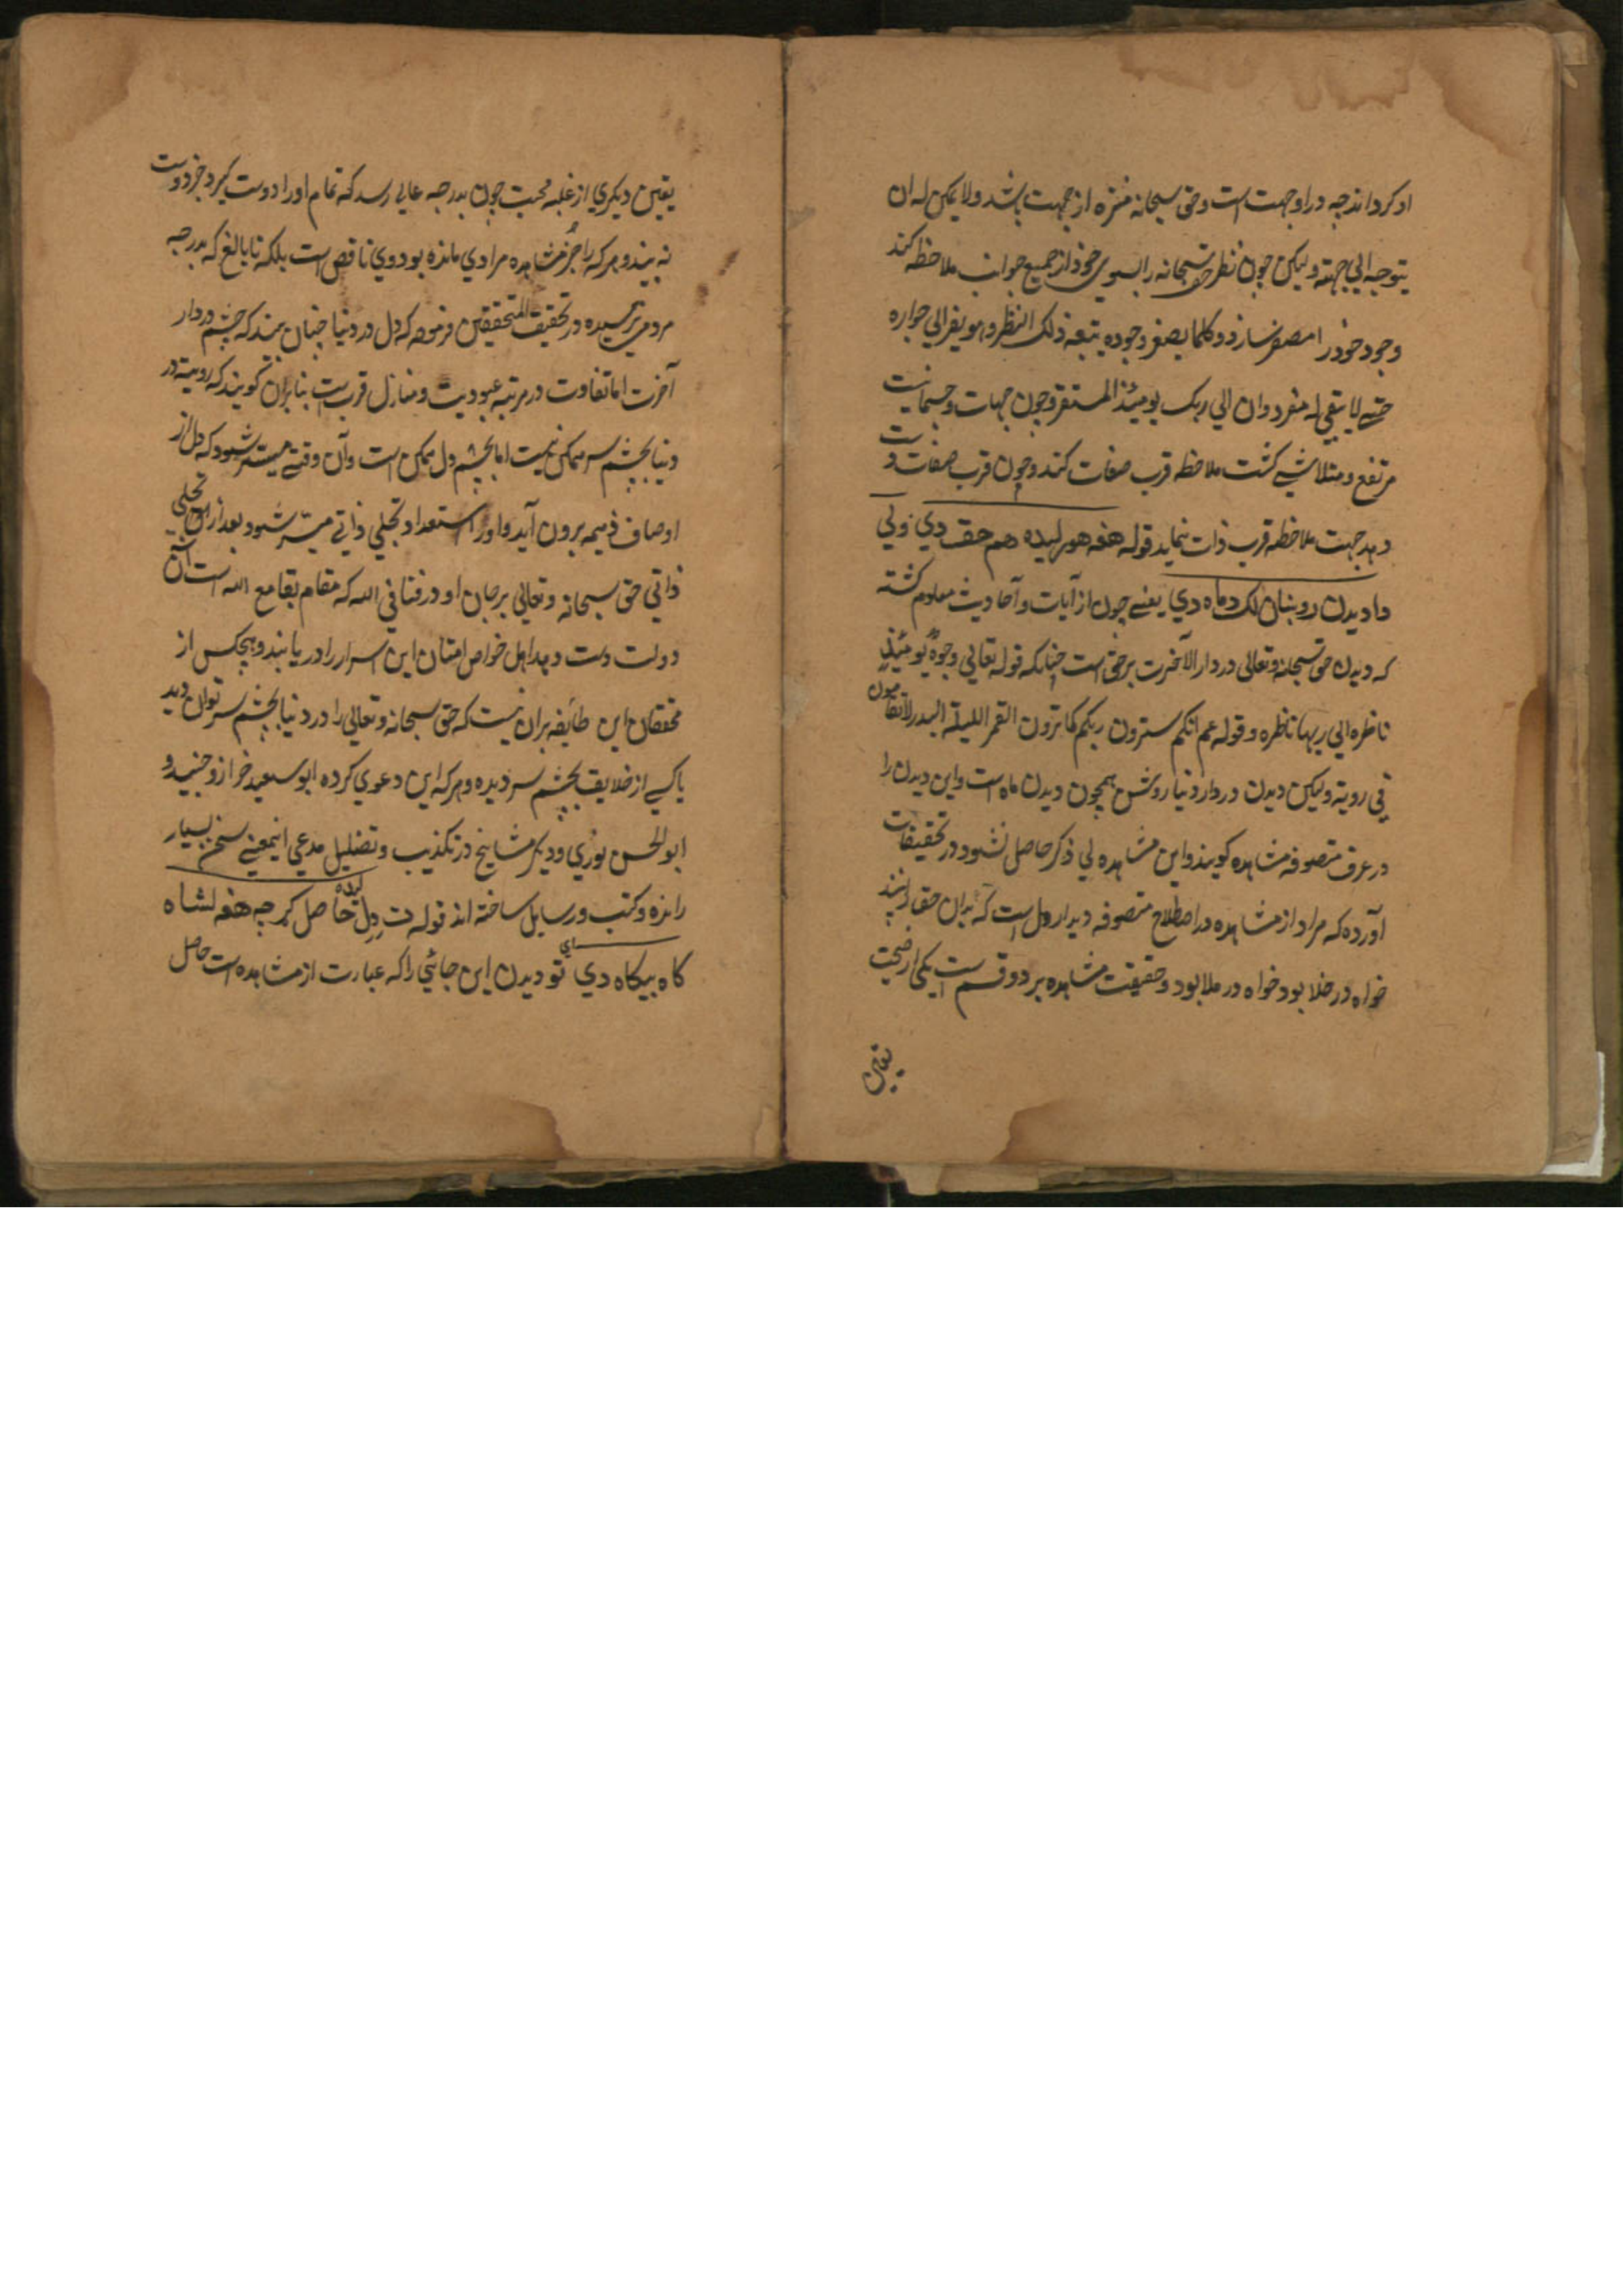 او کرداند چه در او جهت است و حق سبحانه منزه از جهت باشد ولا یمکن له ان
یتوجه الی جهته ولیکن چون نظر حق سبحانه را بسوی خود از جمیع جوانب ملاحظه کند
وجود خود را مصغر سازد و کلما یصغر وجوده یتبعه ذلک النظر و هو یفر الی جواره
حتی لا یبقی له مفر دوان الی ربک یومئذ المستقر و چون جهات و جسمانیت
مرتفع و متلاشی کشت ملاحظه قرب صفات کند و چون قرب صفات دست
دهد جهت ملاحظه قرب ذات نماید قوله هغه هوړ لیده هم حقـ دي ولي
دا دیدن روښان لک د ماه دي یعنی چون از آیات و آحادیث معلوم کشته
که دیدن حق سبحانه وتعالی در دار الآخرت بر حق است چنانکه قوله تعالی وجوه یومئذ
ناظره الی ربها ناظره و قوله عم انکم سترون ربکم کما ترون القمر اللیلة البدر لا تضامون
فی رویته ولیکن دیدن در دار دنیا روشن همچون دیدن ماه است و این دیدن را
در عرف متصوفه مشاهده کویند و این مشاهده بی ذکر حاصل نشود در تحقیقات
آورده که مراد از مشاهده در اصطلاح متصوفه دیدار دل است که بدان حق را بیند
خواه در خلا بود خواه در ملا بود و حقیقت مشاهده بر دو قسم است یکی از صحت
یقین
یقین دیکری از غلبه محبت چون بدرجه عالی رسد که تمام او را دوست کیرد جز دوست
نه بیند و هر که را جز مشاهده مرادی مانده بود وی ناقص است بلکه نابالغ که بدرجه
مردمی نرسیده در تحقیقـ المتحققین فرموده که دل در دنیا چنان بیند که چشم در دار
آخرت اما تفاوت در مرتبه عبودیت و منازل قرب است بنابران کویند که رویت در
دنیا بچشم سر ممکن نیست اما بچشم دل ممکن است و آن وقتی میسر شود که دل از
اوصاف ذمیمه برون آید و او را استعداد تجلی ذاتی میسر شود بعد از آن تجلی
ذاتی حق سبحانه وتعالی بر جان او در فنا فی الله که مقام بقا مع الله است آن
دولت دست دهد اهل خواص امتنان این اسرار را دریابند و هیچکس از
محققان این طائفه بران نیست که حق سبحانه وتعالی را در دنیا بچشم سر توان دید
یا کسی از خلایق بچشم سر دیده و هر که این دعوی کرده ابو سعید خراز و جنید و
ابو الحسن نوری و دیکر مشایخ در تکذیب و تضلیل مدعی اینمعنی سخن بسیار
رانده و کتب و رسایل ساخته اند قوله ت دِ دل لیده حاصل کړ چه هغه لشا ه
کاه بیکاه دي اي تو دیدن این جائی را که عبارت از مشاهده است حاصل